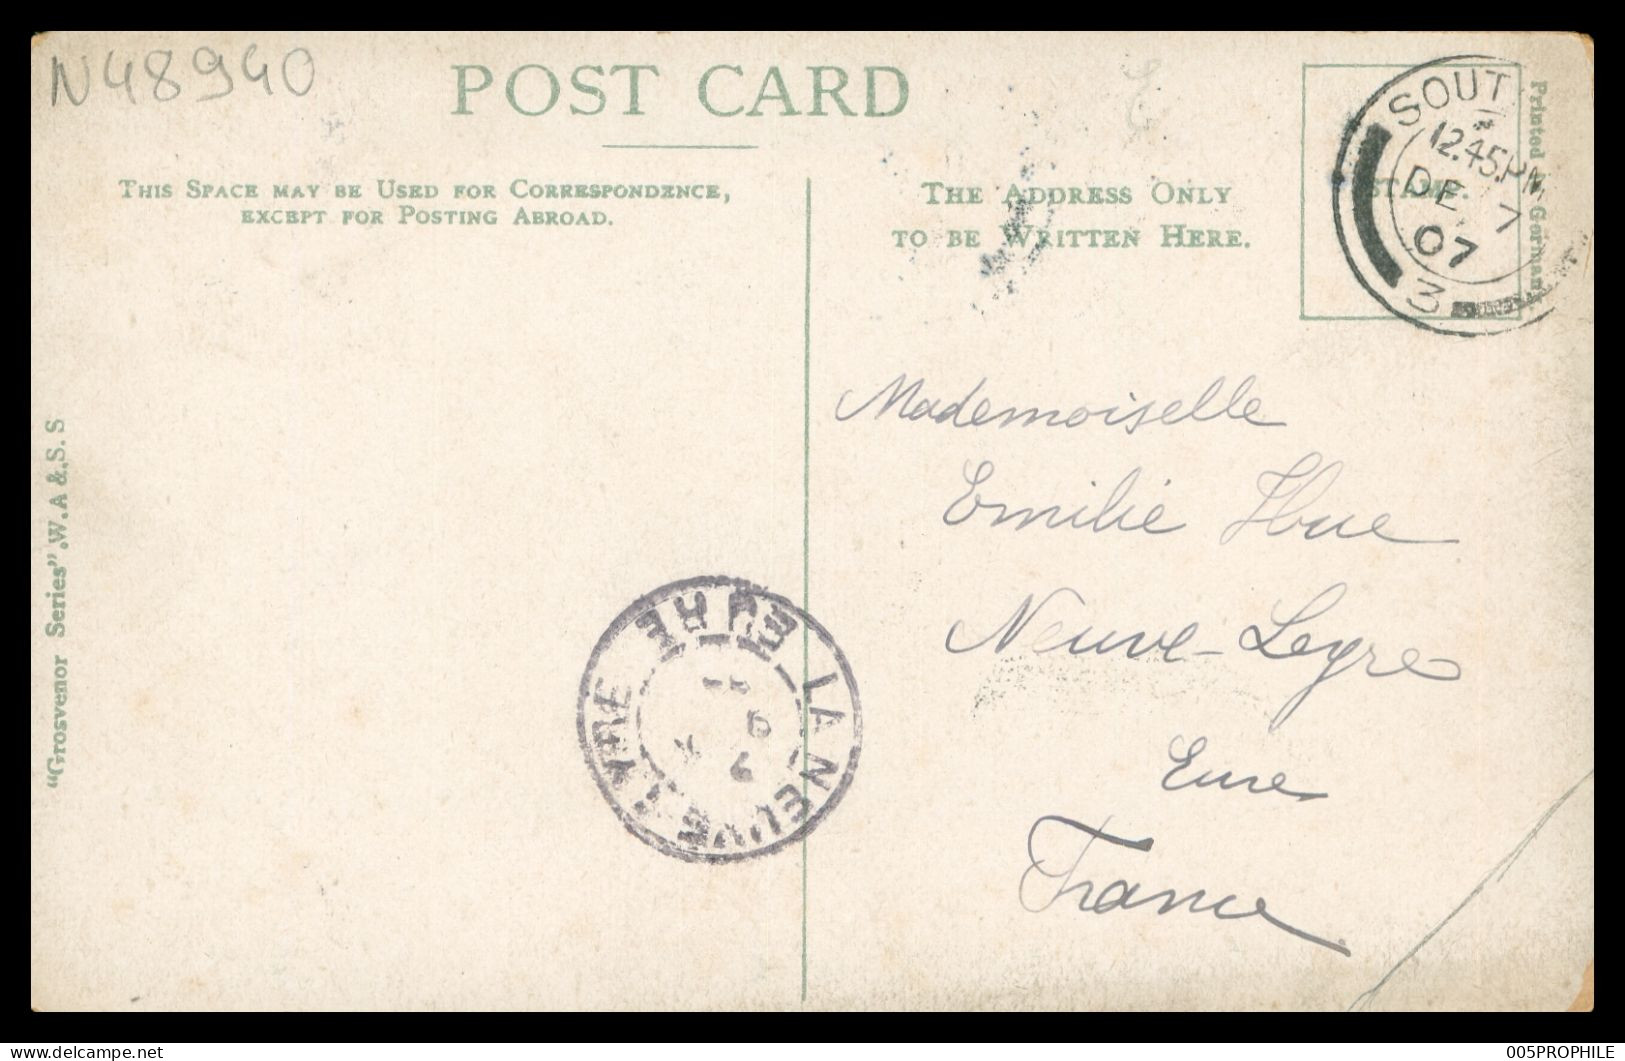 N48940
POST CARD
THIS SPACE MAY BE USED FOR CORRESPONDENCE,
EXCEPT FOR POSTING ABROAD.
THE ADDRESS ONLY
TO BE WRITTEN HERE.
STAMP.
SOUT
12.45.PM
DE 7
07
3
Printed in Germany
"Grosvenor Series". W.A & S.S
Mademoiselle
Emilie Hue
Neuve-Leyre
Eure
France
LA NEUVE-LYRE
EURE
delcampe.net
005PROPHILE